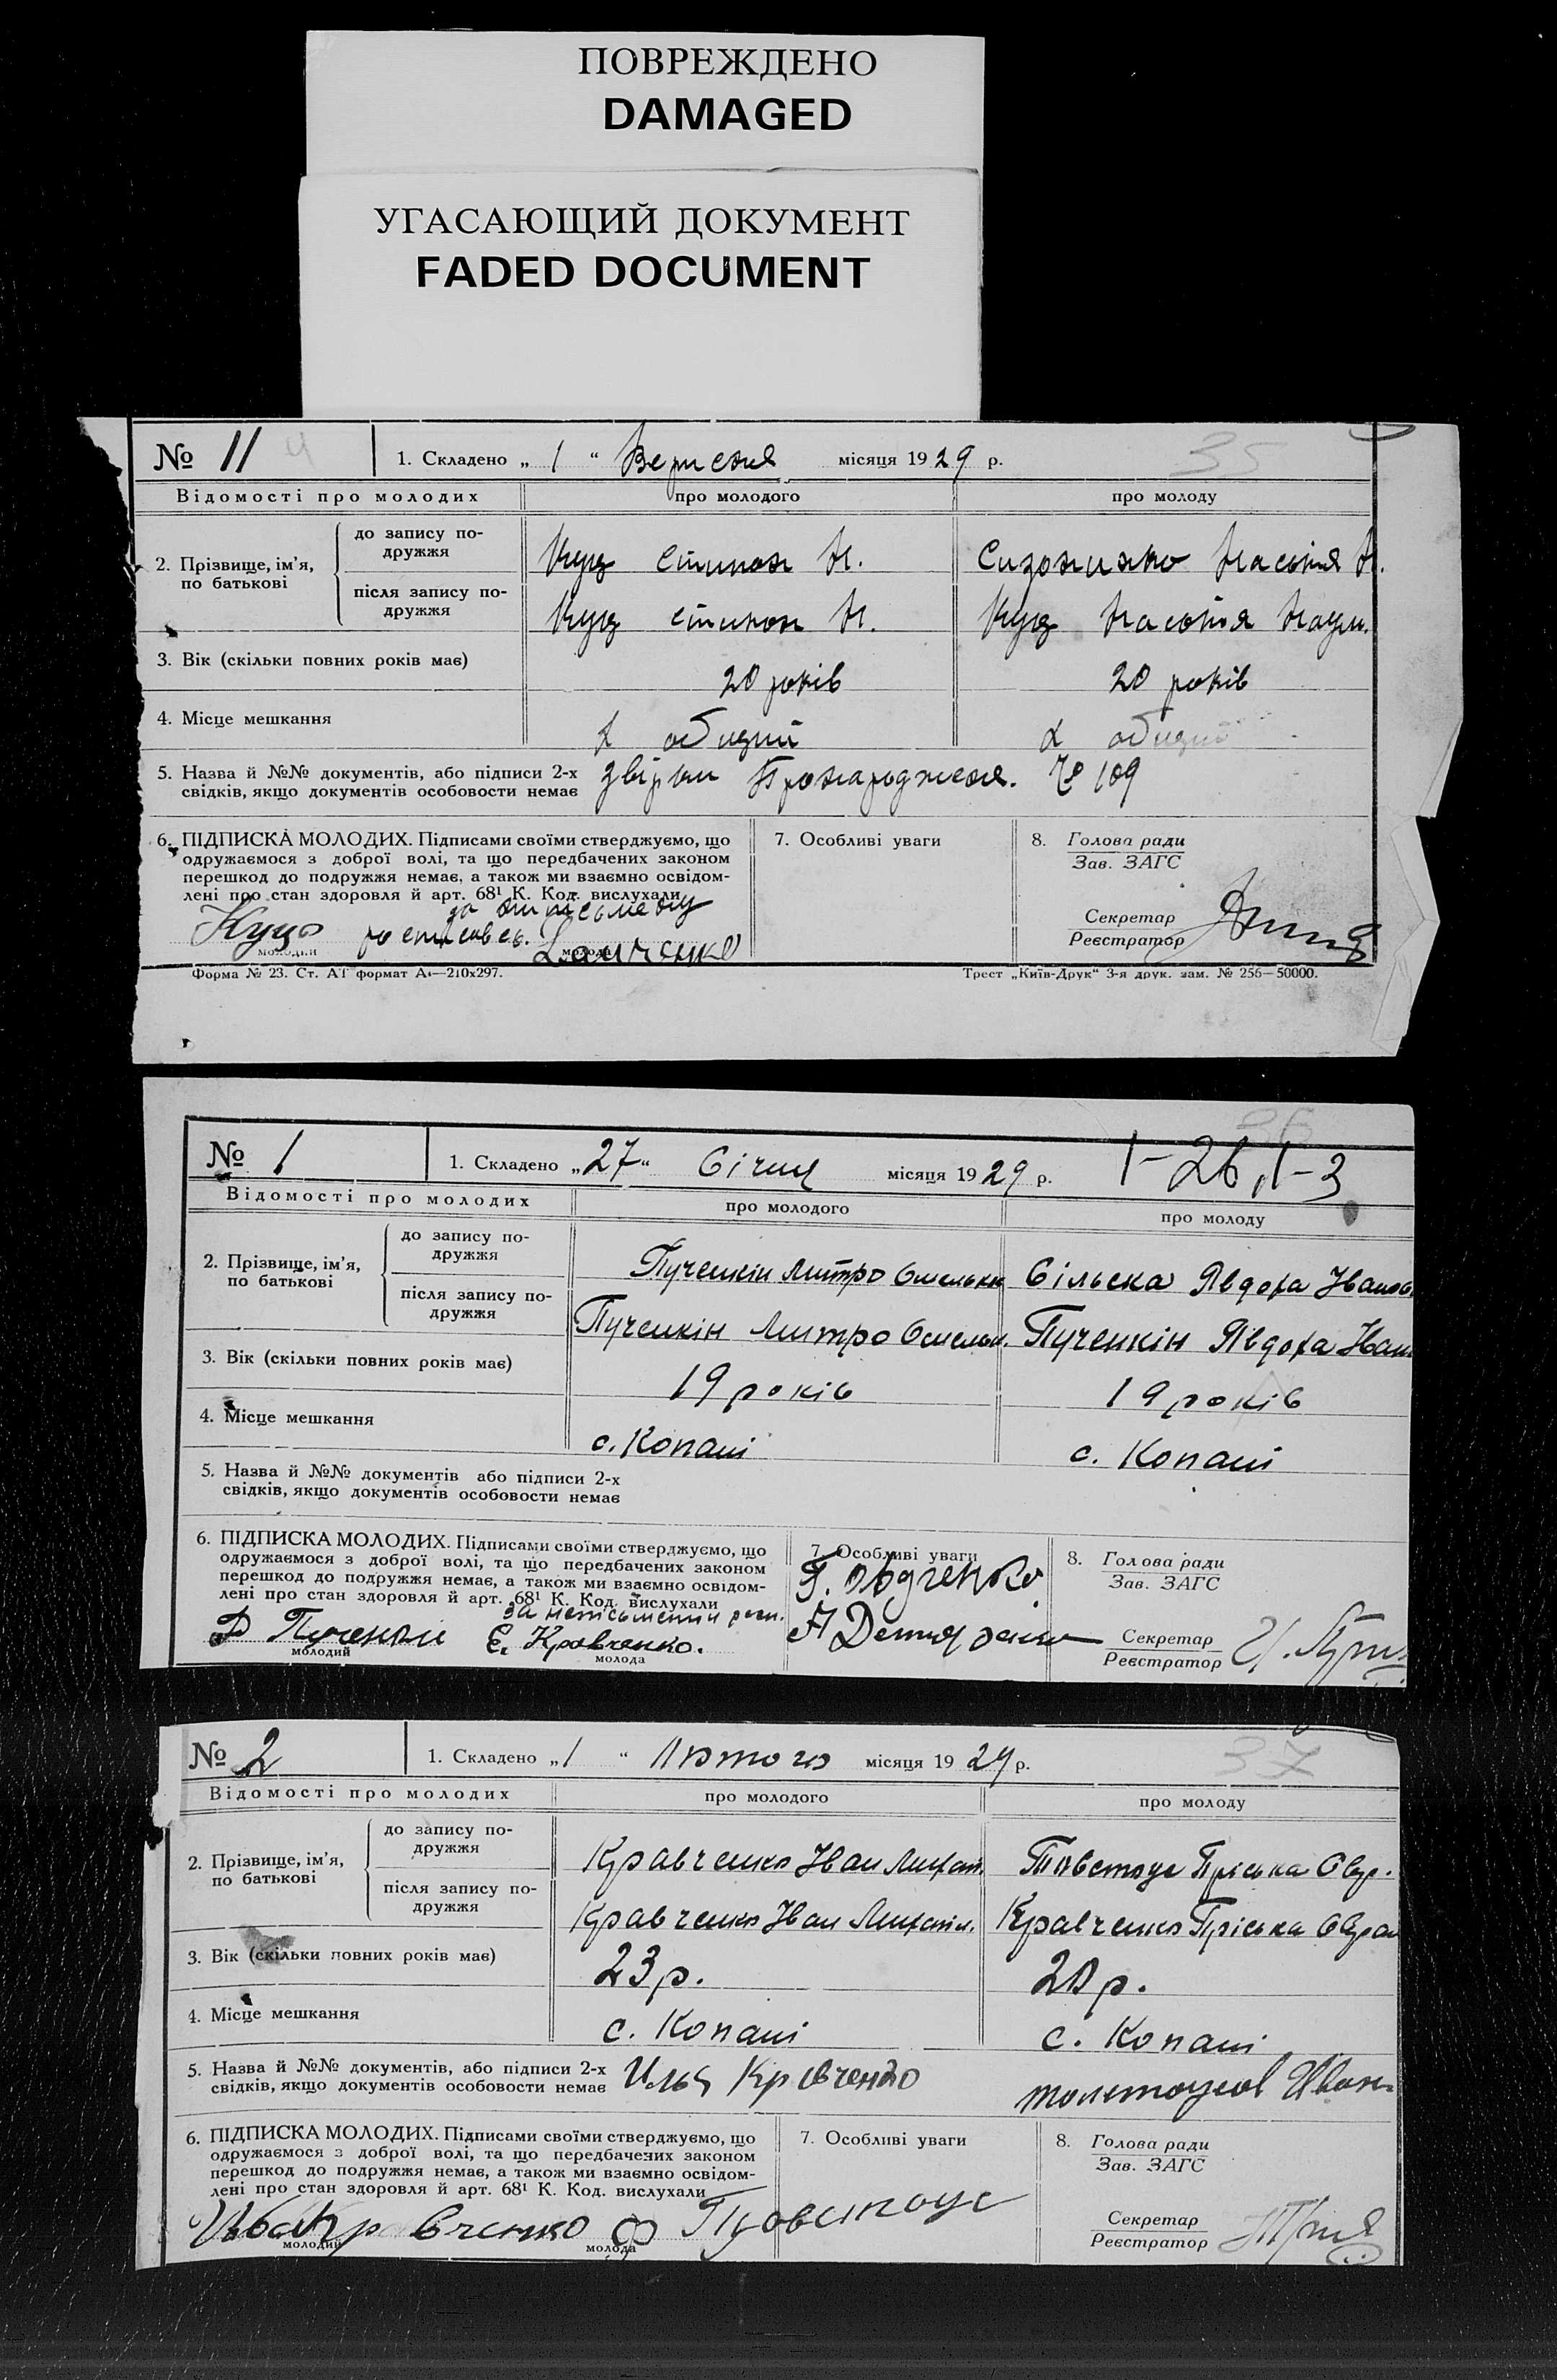 ПОВРЕЖДЕНО
DAMAGED
УГАСАЮЩИЙ ДОКУМЕНТ
FADED DOCUMENT
№ 11 4 1. Складено „ 1 “ Вересня місяця 1929 р. 35
Відомості про молодих про молодого про молоду
до запису по-
дружжя
2. Прізвище, ім'я,
по батькові
Куц Степан Н. Сизоненко Настія Н.
після запису по-
дружжя
Куц Степан Н. Куц Настія Наум.
3. Вік (скільки повних років має) 20 років 20 років
4. Місце мешкання
5. Назва й №№ документів, або підписи 2-х
свідків, якщо документів особовости немає
№ 109
6. ПІДПИСКА МОЛОДИХ. Підписами своїми стверджуємо, що
одружаємося з доброї волі, та що передбачених законом
перешкод до подружжя немає, а також ми взаємно освідом-
лені про стан здоровля й арт. 68¹ К. Код. вислухали
за
Куц
молодий молода
7. Особливі уваги
8. Голова ради
Зав. ЗАГС
Секретар
Реєстратор
Форма № 23. Ст. АІ формат А₄—210х297. Трест „Київ-Друк“ 3-я друк. зам. № 256—50000.
№ 1 1. Складено „27“ Січня місяця 1929 р. 36 1-26, 1-3
Відомості про молодих про молодого про молоду
до запису по-
дружжя
2. Прізвище, ім'я,
по батькові
Пученкін Митро Омельк Сільска Явдоха Іванов.
після запису по-
дружжя
Пученкін Митро Омельк. Пученкін Явдоха Іван
3. Вік (скільки повних років має) 19 років 19 років
4. Місце мешкання с. Копані с. Копані
5. Назва й №№ документів або підписи 2-х
свідків, якщо документів особовости немає
6. ПІДПИСКА МОЛОДИХ. Підписами своїми стверджуємо, що
одружаємося з доброї волі, та що передбачених законом
перешкод до подружжя немає, а також ми взаємно освідом-
лені про стан здоровля й арт. 68¹ К. Код. вислухали
за
Е. Кравченко.
молодий молода
7. Особливі уваги
8. Голова ради
Зав. ЗАГС
Секретар
Реєстратор
№ 2 1. Складено „1 “ Лютого місяця 1929 р. 37
Відомості про молодих про молодого про молоду
до запису по-
дружжя
2. Прізвище, ім'я,
по батькові
Кравченко Іван Михай. Товстоус Пріська Овер.
після запису по-
дружжя
Кравченко Іван Михайл. Кравченко Пріська
3. Вік (скільки повних років має) 23 р. 20 р.
4. Місце мешкання с. Копані с. Копані
5. Назва й №№ документів, або підписи 2-х
свідків, якщо документів особовости немає
Илья Кравченко Иван
6. ПІДПИСКА МОЛОДИХ. Підписами своїми стверджуємо, що
одружаємося з доброї волі, та що передбачених законом
перешкод до подружжя немає, а також ми взаємно освідом-
лені про стан здоровля й арт. 68¹ К. Код. вислухали
Кравченко
молодий молода
7. Особливі уваги
8. Голова ради
Зав. ЗАГС
Секретар
Реєстратор